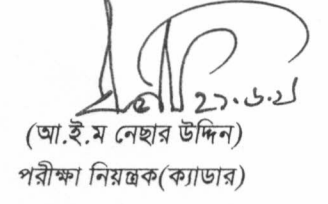 (আ.ই.ম নেছার উদ্দিন)
পরীক্ষা নিয়ন্ত্রক(ক্যাডার)